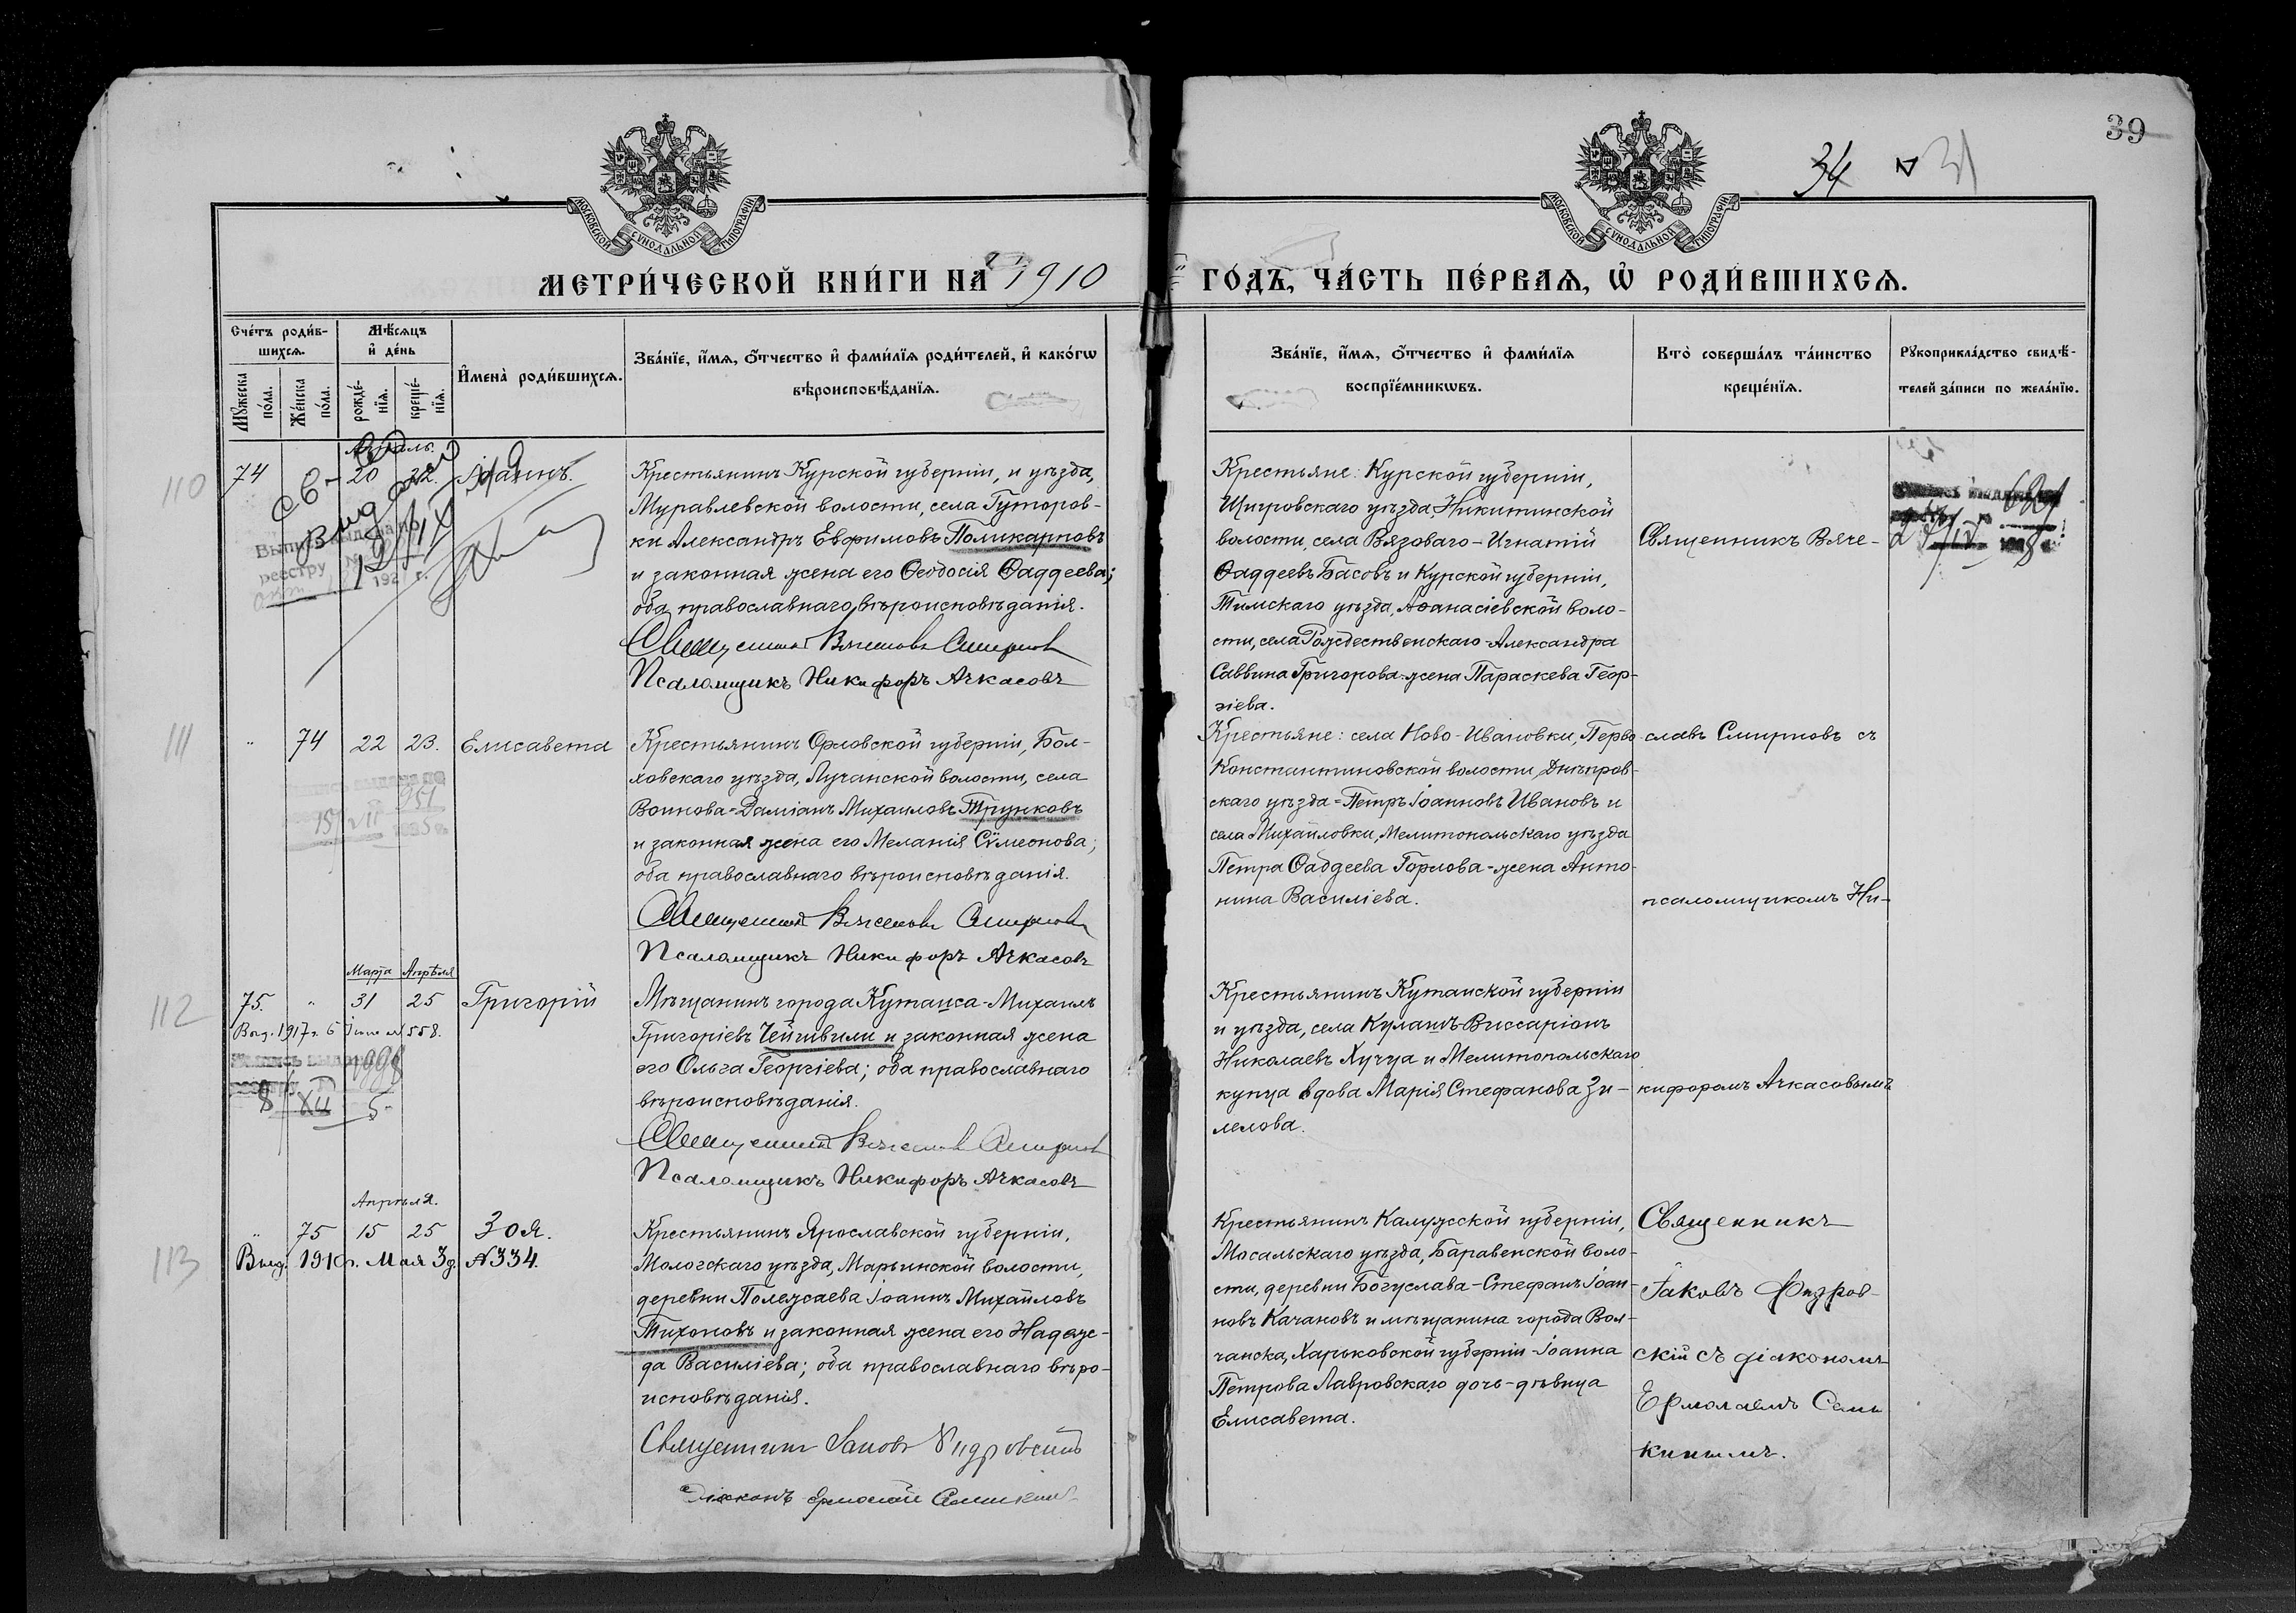 39
34
31
МЕТРИ́ЧЕСКОЙ КНИ́ГИ НА 1910
ГО́ДЪ, ЧА́СТЬ ПЕ́РВАЯ, Ѡ҆ РОДИ́ВШИХСЯ.
МОСКОВСКОЙ СѴНОДАЛЬНОЙ ТИПОГРАФІИ
МОСКОВСКОЙ СѴНОДАЛЬНОЙ ТИПОГРАФІИ
Сче́тъ роди́в-
шихся.
Мꙋ́жеска по́ла.
Же́нска по́ла.
Мѣ́сяцъ
и҆ де́нь
рожде́-
нїя.
креще́-
нїя.
И҆мена̀ роди́вшихся.
Зва́нїе, и҆́мя, ѻ҆́тчество и҆ фами́лїя роди́телей, и҆ како́гѡ
вѣроисповѣ́данїя.
Зва́нїе, и҆́мя, ѻ҆́тчество и҆ фами́лїя
воспрїе́мникѡвъ.
Кто̀ соверша́лъ та́инство
креще́нїя.
Рꙋкоприкла́дство свидѣ́-
телей за́писи по жела́нїю.
110
Апрѣль.
74 20 22. Іоаннъ.
Крестьянинъ Курской губерніи, и уѣзда,
Муравлевской волости, села Гуторов-
ки Александръ Евфимовъ Поликарповъ
и законная жена его Ѳеодосія Ѳаддеева;
оба православнаго вѣроисповѣданія.
Священникъ Вячеславъ Смирновъ
Псаломщикъ Никифоръ Ачкасовъ
Крестьяне: Курской губерніи,
Щигровскаго уѣзда, Никитинской
волости, села Вязоваго-Игнатій
Ѳаддеевъ Басовъ и Курской губерніи,
Тимскаго уѣзда, Аѳанасіевской воло-
сти, села Рождественскаго-Александра
Саввина Григорова-жена Параскева Геор-
гіева.
Священникъ Вяче-
111
" 74 22 23. Елисавета
951
15/VII 1935
Крестьянинъ Орловской губерніи, Бол-
ховскаго уѣзда, Лучанской волости, села
Воинова-Даміанъ Михаиловъ Трунковъ
и законная жена его Меланія Сѵмеонова;
оба православнаго вѣроисповѣданія.
Священникъ Вячеславъ Смирновъ
Псаломщикъ Никифоръ Ачкасовъ
Крестьяне: села Ново-Ивановки, Перво-
Константиновской волости, Днѣпров-
скаго уѣзда-Петръ Іоанновъ Ивановъ и
села Михайловки, Мелитопольскаго уѣзда
Петра Ѳаддеева Горлова-жена Анто-
нина Василіева.
славъ Смирновъ съ
псаломщикомъ Ни-
112
Марта Апрѣля
75. " 31 25 Григорій
Выд. 1917 г. 6 Іюня №558.
1998
8/XII 5
Мѣщанинъ города Кутаиса-Михаилъ
Григоріевъ Чейшвили и законная жена
его Ольга Георгіева; оба православнаго
вѣроисповѣданія.
Священникъ Вячеславъ Смирновъ
Псаломщикъ Никифоръ Ачкасовъ
Крестьянинъ Кутаиской губерніи
и уѣзда, села Кулашъ-Виссаріонъ
Николаевъ Хучуа и Мелитопольскаго
купца вдова Марія Стефанова Зи-
лелова.
кифоромъ Ачкасовымъ
113
Апрѣля.
" 75 15 25 Зоя.
Выд. 1910 г. Мая 3 д. №334.
Крестьянинъ Ярославской губерніи,
Мологскаго уѣзда, Марьинской волости,
деревни Полежаева Іоаннъ Михайловъ
Тихоновъ и законная жена его Надеж-
да Василіева; оба православнаго вѣро-
исповѣданія.
Священникъ Іаковъ
Діаконъ Ермолай
Крестьянинъ Калужской губерніи,
Мосальскаго уѣзда, Баравенской воло-
сти, деревни Богуслава-Стефанъ Іоан-
новъ Качановъ и мѣщанина города Вол-
чанска, Харьковской губерніи-Іоанна
Петрова Лавровскаго дочь-дѣвица
Елисавета.
Священникъ
Іаковъ
скій съ діакономъ
Ермолаемъ Сань
кинымъ.